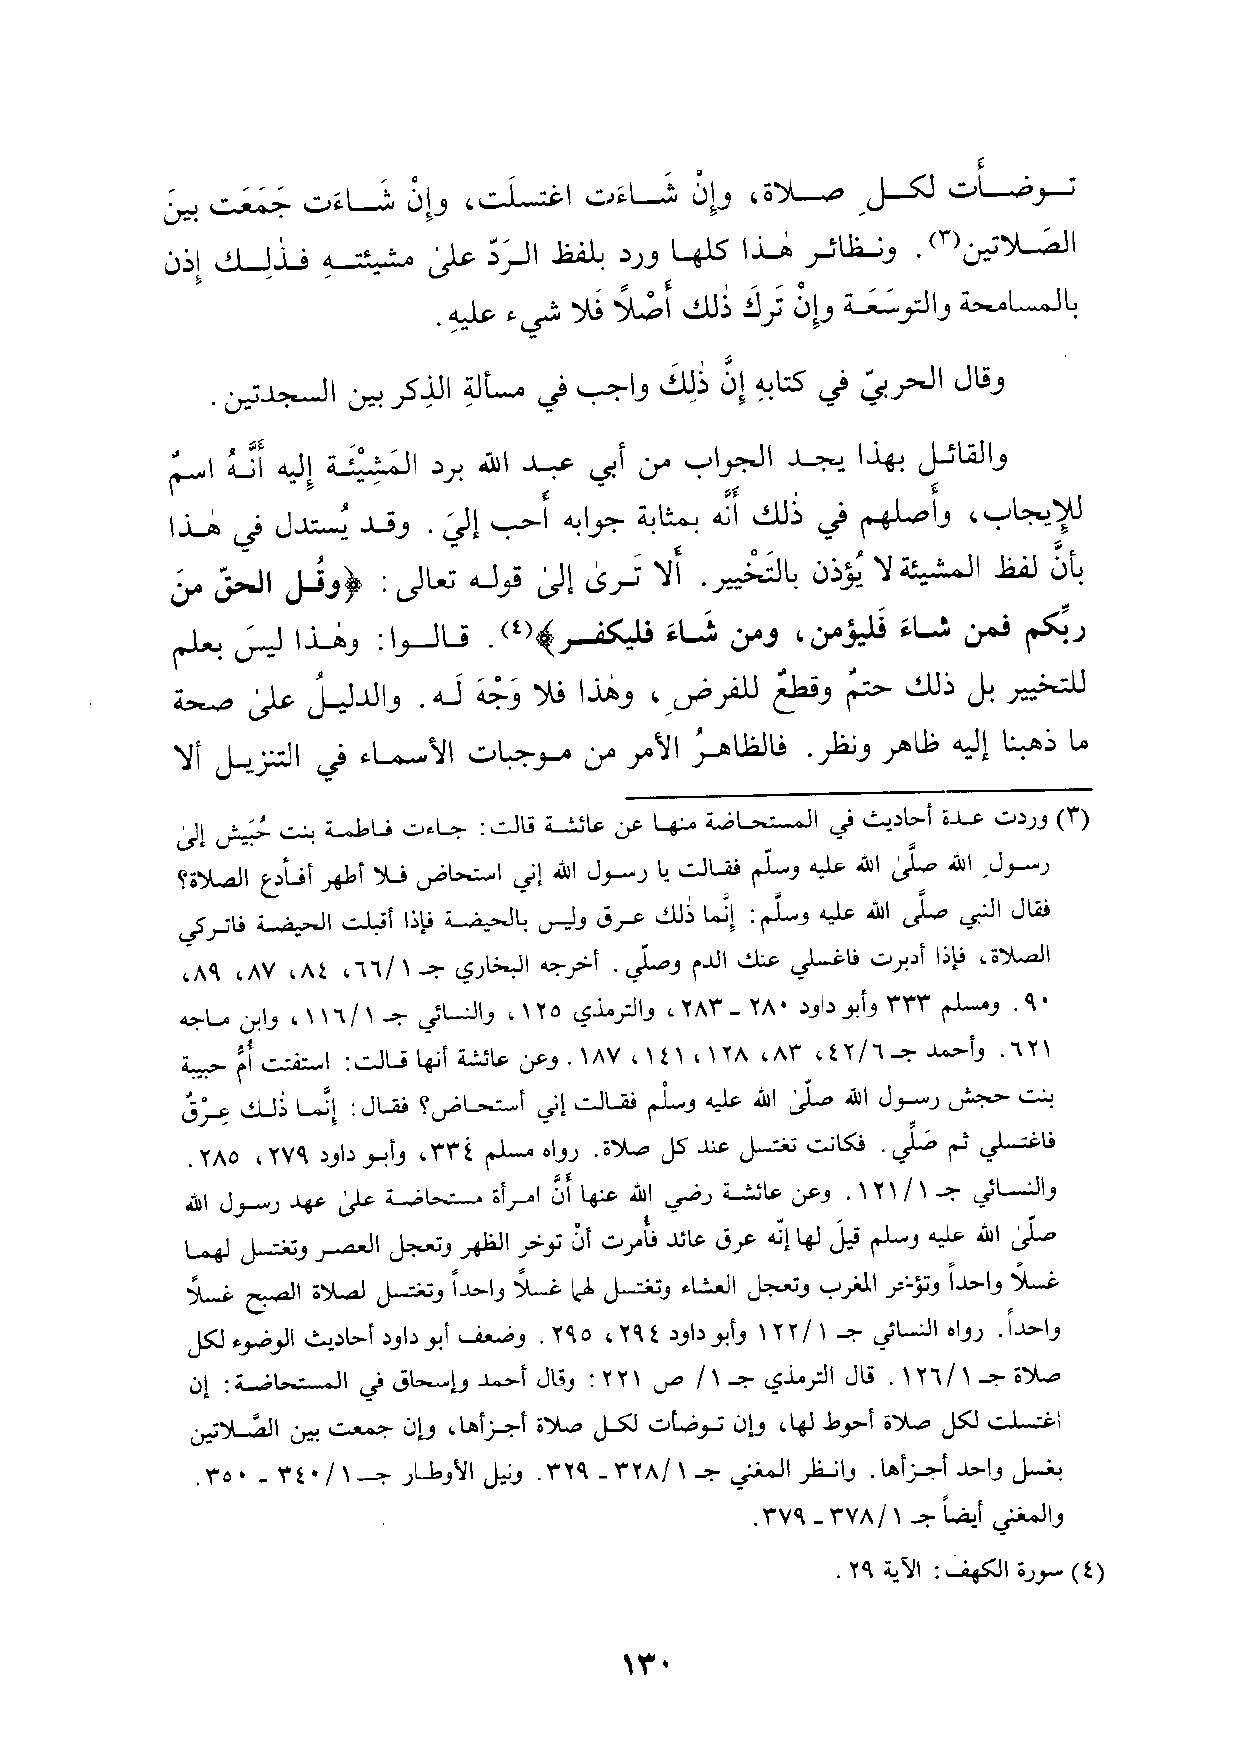 تـوضـأت لكـل صـلاة، وإنْ شَـاءَت اغتسلَت، وإنْ شَـاءَت جَمَعَت بينَ
الصَـلاتين(٣). ونـظائـر هٰـذا كلهـا ورد بلفظ الـرَدّ علىٰ مشيئتـهِ فـذٰلِـك إذن
بالمسامحة والتوسَعَـة وإنْ تَركَ ذٰلك أَصْلاً فَلا شيء عليهِ.
وقال الحربيّ في كتابهِ إنَّ ذٰلِكَ واجب في مسألةِ الذِكر بين السجدتين.
والقائـل بهذا يجـد الجواب من أبي عبـد الله برد المَشِيْئَـة إليه أنَّـهُ اسمٌ
للإيجاب، وأَصلهم في ذٰلك أَنَّه بمثابة جوابه أَحب إليَ. وقـد يُستدل في هٰـذا
بأنَّ لفظ المشيئة لا يُؤذن بالتَخْيير. أَلا تَـرىٰ إلىٰ قوله تعالى: ﴿وقُـل الحقّ منَ
ربِّكم فمن شـاءَ فَليؤمن، ومن شَـاءَ فليكفـر﴾(٤). قـالـوا: وهٰـذا ليسَ بعلم
للتخيير بل ذلك حتمٌ وقطعٌ للفرضِ، وهٰذا فلا وَجْهَ لَـه. والدليـلُ علىٰ صحة
ما ذهبنا إليه ظاهر ونظر. فالظاهـرُ الأمر من مـوجبات الأسمـاء في التنزيـل ألا
(٣) وردت عـدة أحاديث في المستحاضة منهـا عن عائشـة قالت: جـاءت فـاطمـة بنت حُبَيش إلىٰ
رسولِ الله صلَّىٰ الله عليه وسلّم فقـالت يا رسـول الله إني استحاض فـلا أطهر أفـأدع الصلاة؟
فقال النبي صلَّى الله عليه وسلَّم: إنَّما ذٰلك عـرق وليس بالحيضـة فإذا أقبلت الحيضـة فاتـركي
الصلاة، فإذا أدبرت فاغسلي عنك الدم وصلّي. أخرجه البخاري جـ ١/٦٦، ٨٤، ٨٧، ٨٩،
٩٠. ومسلم ٣٣٣ وأبو داود ٢٨٠ - ٢٨٣، والترمذي ١٢٥، والنسائي جـ ١/١١٦، وابن ماجه
٦٢١. وأحمد جـ ٤٢/٦، ٨٣، ١٢٨، ١٤١، ١٨٧. وعن عائشة أنها قـالت: استفتت أُمُّ حبيبة
بنت جحش رسـول الله صلّىٰ الله عليه وسلْم فقـالت إني أستحاض؟ فقـال: إنَّمـا ذٰلـك عِـرْقٌ
فاغتسلي ثم صَلِّي. فكانت تغتسل عند كل صلاة. رواه مسلم ٣٣٤، وأبـو داود ٢٧٩، ٢٨٥.
والنسـائي جـ ١/١٢١. وعن عائشـة رضي الله عنها أنَّ امـرأة مستحاضـة علىٰ عهد رسـول الله
صلّىٰ الله عليه وسلم قيلَ لها إنّه عرق عاند فأُمرت أنْ توخر الظهر وتعجل العصـر وتغتسـل لهمـا
غسلاً واحداً وتؤخر المغرب وتعجل العشاء وتغتسل لهما غسلاً واحداً وتغتسل لصلاة الصبح غسلاً
واحداً. رواه النسائي جـ ١/١٢٢ وأبو داود ٢٩٤، ٢٩٥. وضعف أبو داود أحاديث الوضوء لكل
صلاة جـ ١/١٢٦. قال الترمذي جـ ١/ ص ٢٢١: وقال أحمد وإسحاق في المستحاضـة: إن
اغتسلت لكل صلاة أحوط لها، وإن تـوضأت لكـل صلاة أجـزأها، وإن جمعت بين الصَّـلاتين
بغسل واحد أجـزأها. وانـظر المغني جـ ١/٣٢٨ - ٣٢٩. ونيل الأوطـار جـ ١/٣٤٠ - ٣٥٠.
والمغني أيضاً جـ ١/٣٧٨ - ٣٧٩.
(٤) سورة الكهف: الآية ٢٩.
١٣٠